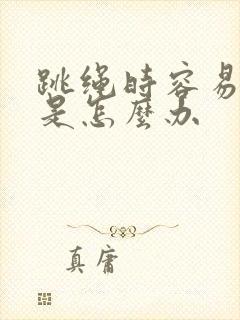 跳绳时容易
是怎麼办
真庸